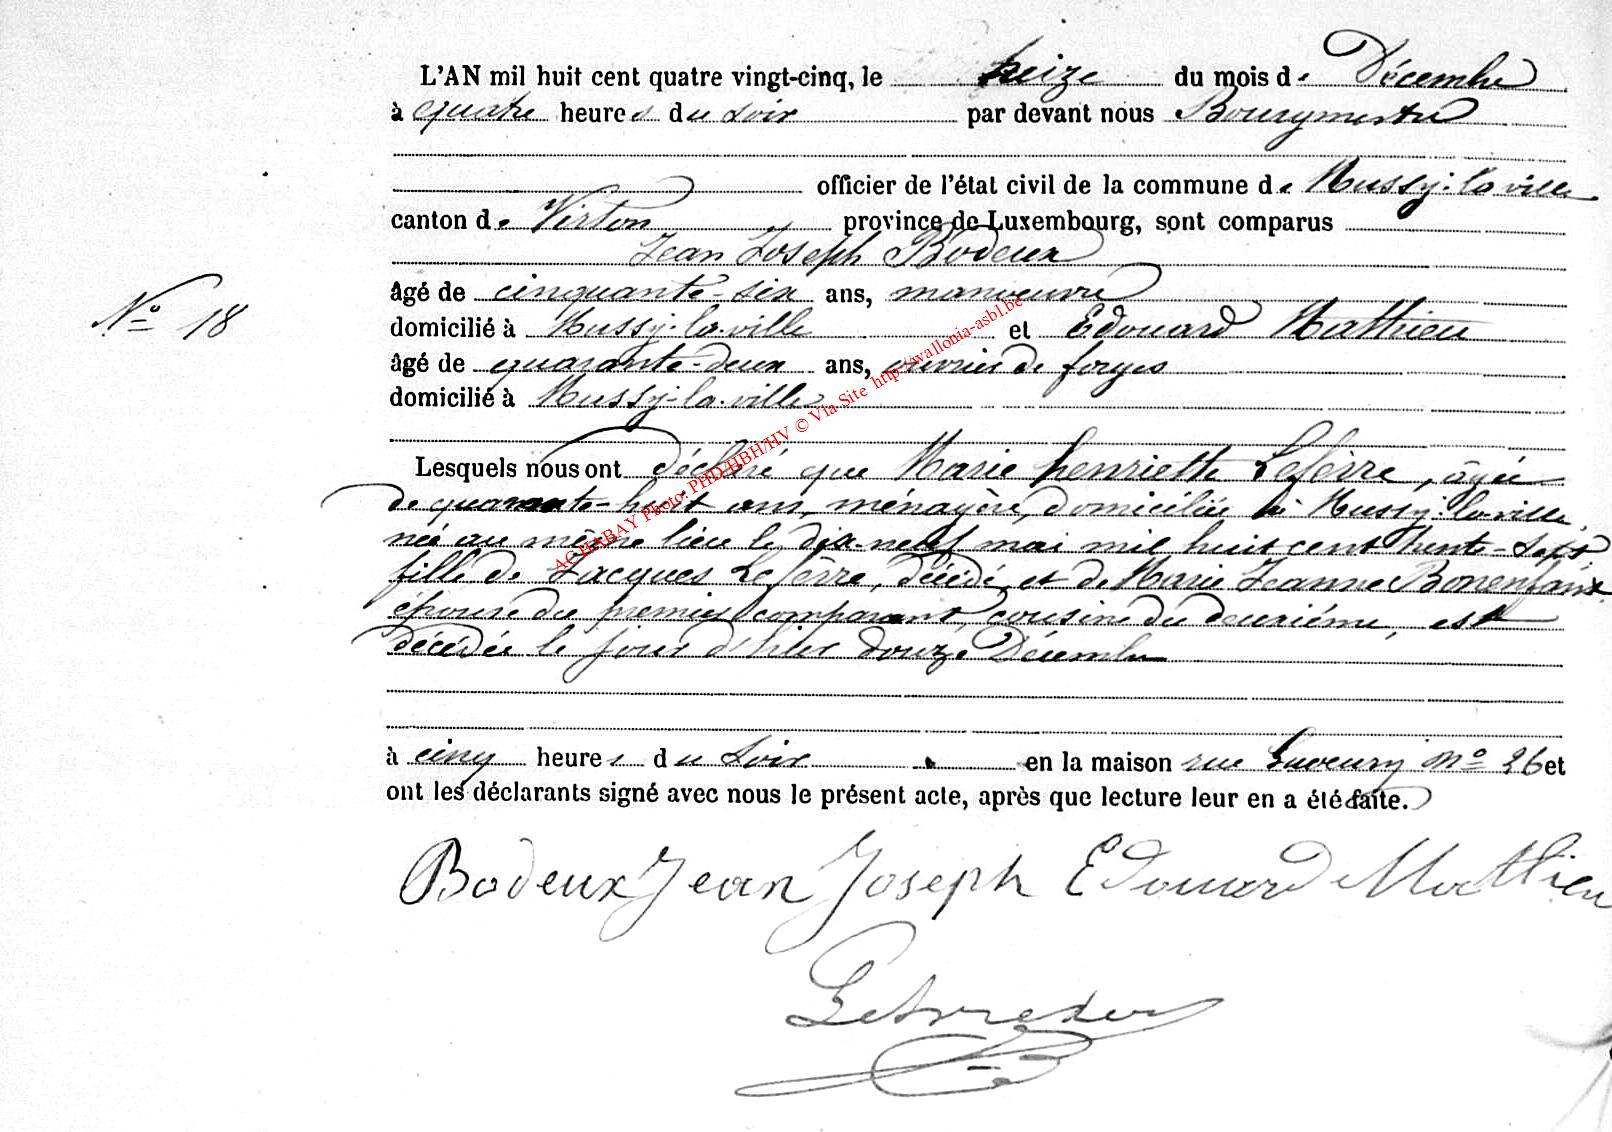 L'AN mil huit cent quatre vingt-cinq, le treize du mois de Décembre
à quatre heures du soir par devant nous Bourgmestre
officier de l'état civil de la commune de Mussy-la-ville
canton de Virton province de Luxembourg, sont comparus
Jean Joseph Bodeux
âgé de cinquante-six ans, manœuvre
N° 18
domicilié à Mussy-la-ville et Edouard Mathieu
âgé de quarante-deux ans, ouvrier de forges
domicilié à Mussy-la-ville
Lesquels nous ont déclaré que Marie henriette Lefèvre, âgée
de quarante-huit ans, ménagère, domiciliée à Mussy-la-ville,
née au même lieu le dix-neuf mai mil huit cent trente-sept
fille de Jacques Lefèvre, décédé, et de Marie Jeanne Bonenfant
épouse du premier comparant, cousine du deuxième, est
décédée le jour d'hier douze Décembre
à cinq heures du soir en la maison rue N° 26 et
ont les déclarants signé avec nous le présent acte, après que lecture leur en a été faite.
Bodeux Jean Joseph Edouard Mathieu
AGHABAY Photo: PHD/HBH/HV © Via Site http://wallonia-asbl.be